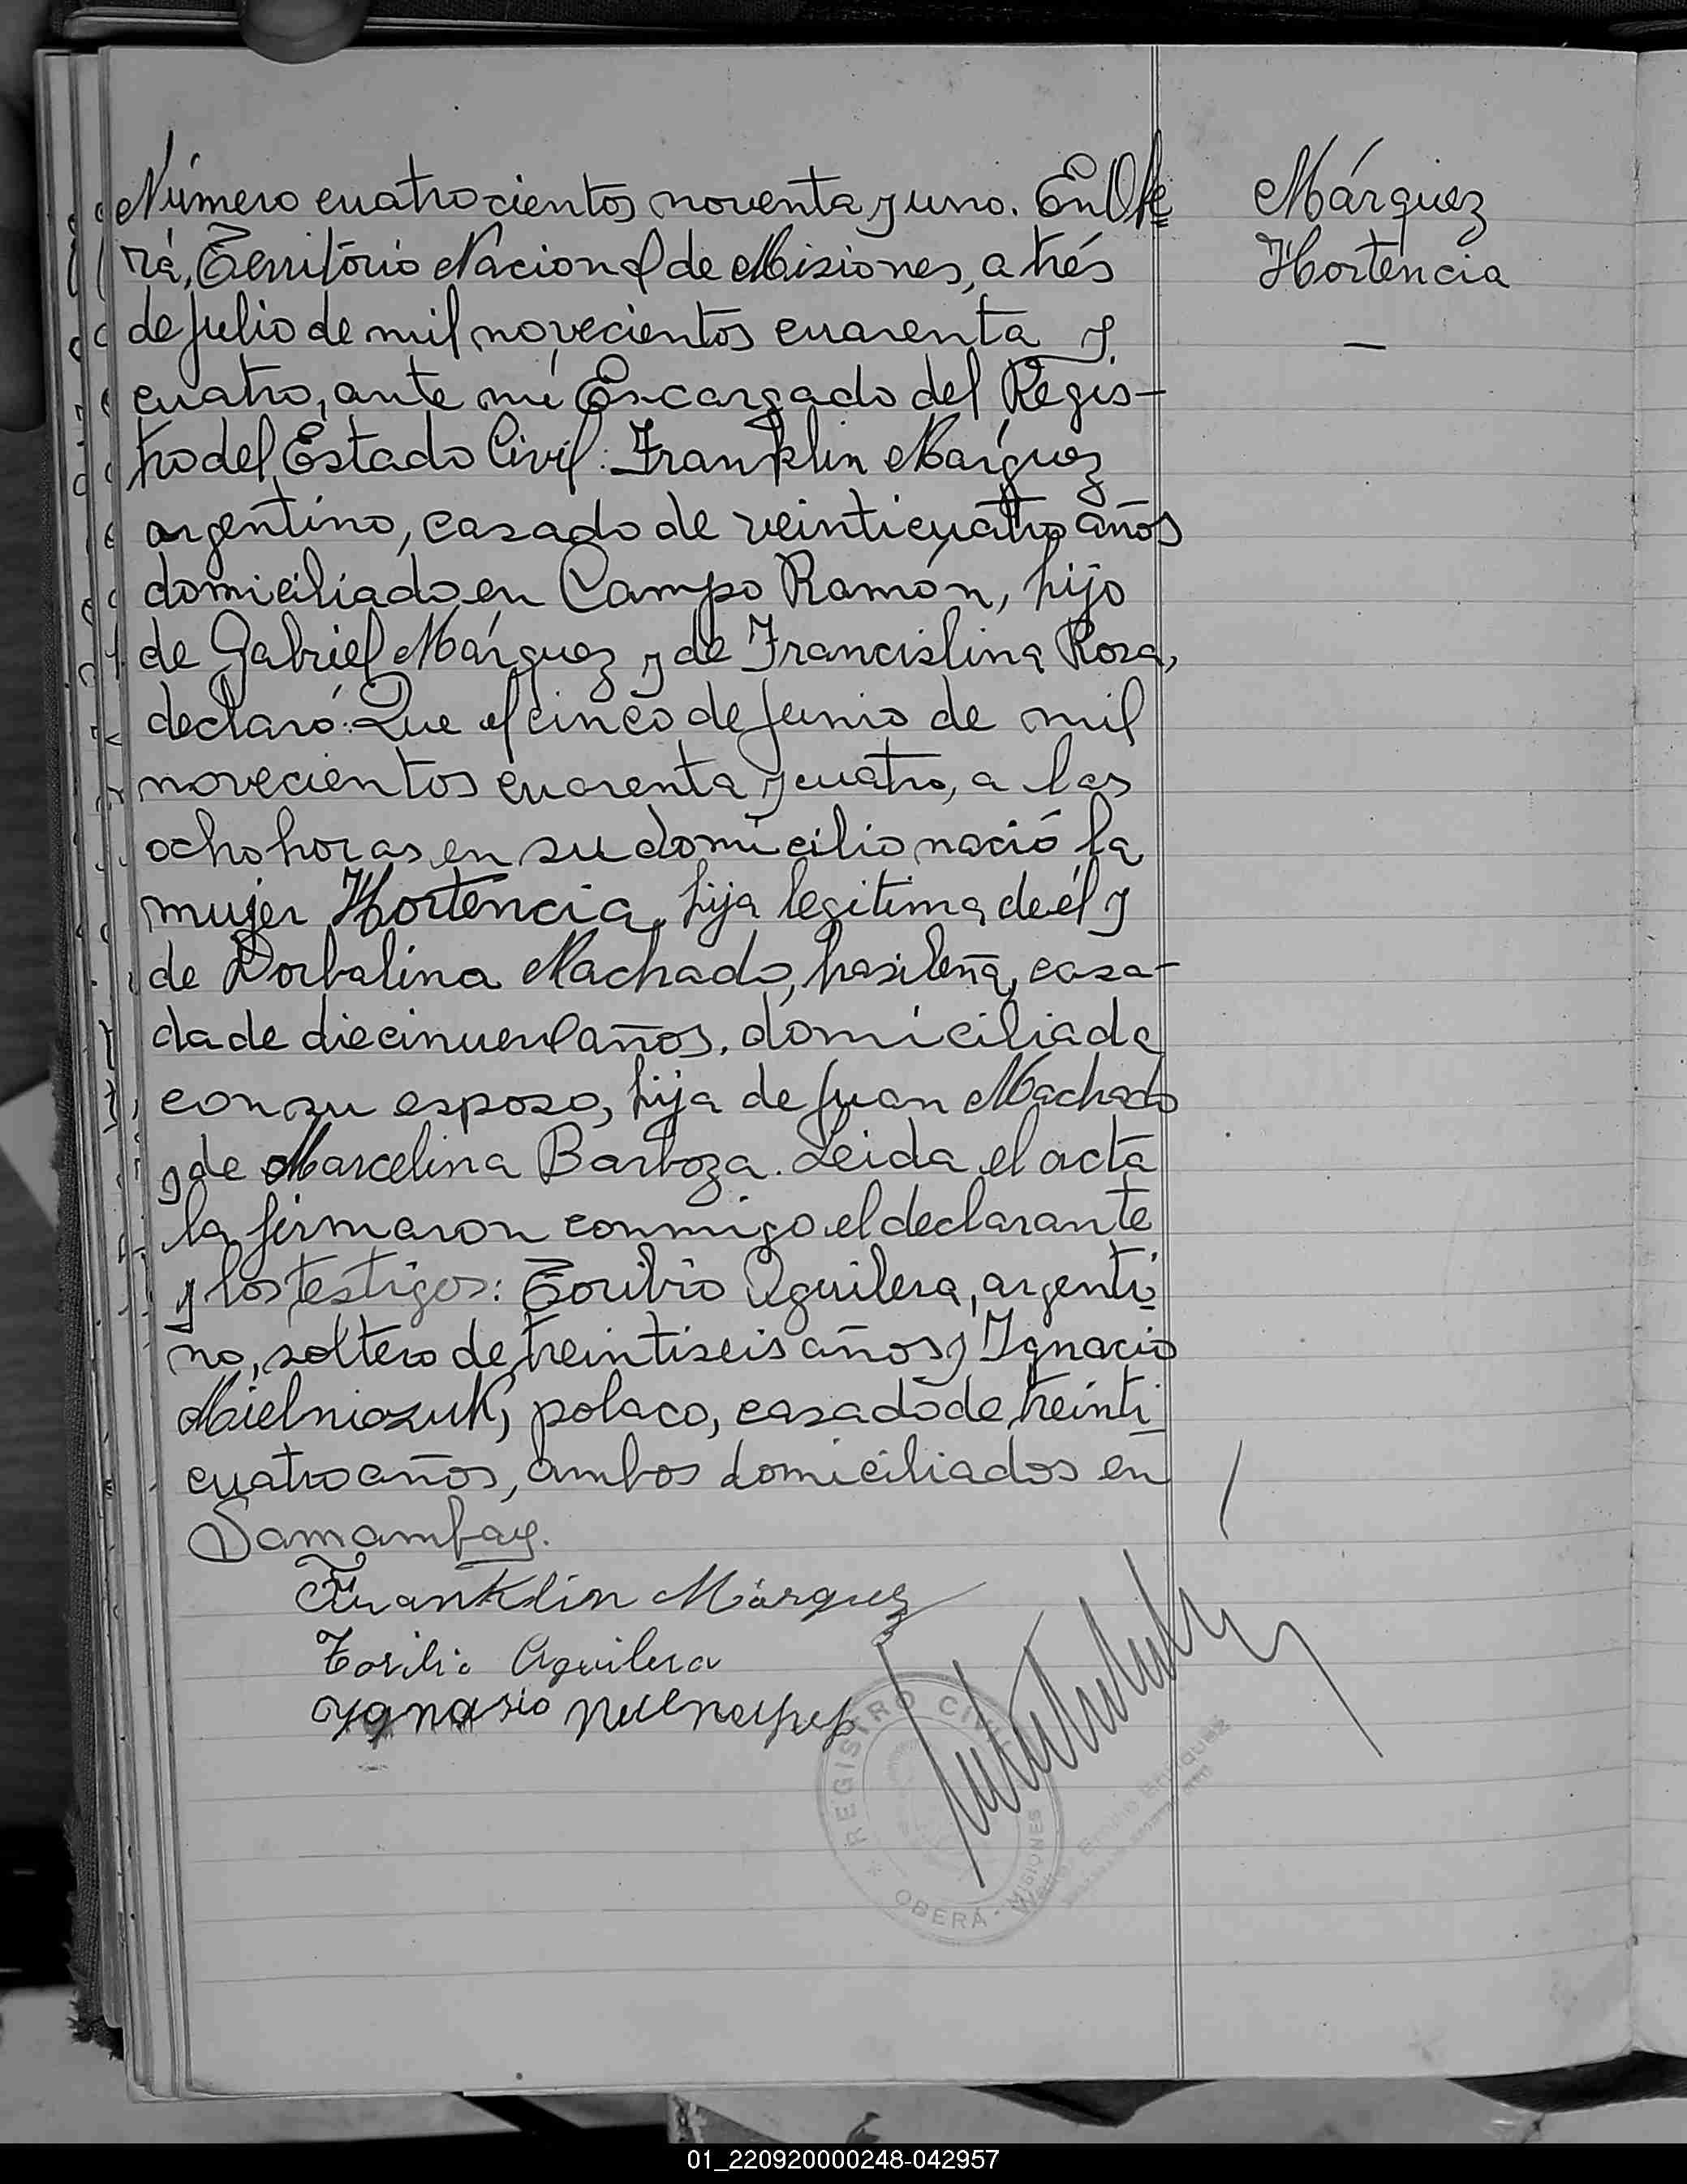 Número cuatrocientos noventa y uno. En Obe=
rá, Território Nacional de Misiones, a trés
de Julio de mil novecientos cuarenta y
cuatro, ante mí Encargado del Regis-
tro del Estado Civil: Franklin Márquez
argentino, casado de veinticuatro años
domiciliado en Campo Ramón, hijo
de Gabriel Márquez y de Francislina Rosa,
declaró: Que el cinco de Junio de mil
novecientos cuarenta y cuatro, a las
ocho horas en su domicilio nació la
mujer Hortencia, hija legitima de él y
de Dorbalina Machado, brasileña, casa-
da de diecinueve años, domiciliada
con su esposo, hija de Juan Machado
y de Marcelina Barboza. Leida el acta
la firmaron conmigo el declarante
y los testigos: Toribio Aguilera, argenti-
no, soltero de treintiseis años y Ignacio
Mielniczuk, polaco, casado de treinti
cuatro años, ambos domiciliados en
Samambay.
Márquez
Hortencia
Franklin Márquez
Toribio Aguilera
Ygnasio
REGISTRO CIVIL
OBERÁ - MISIONES
01_220920000248-042957